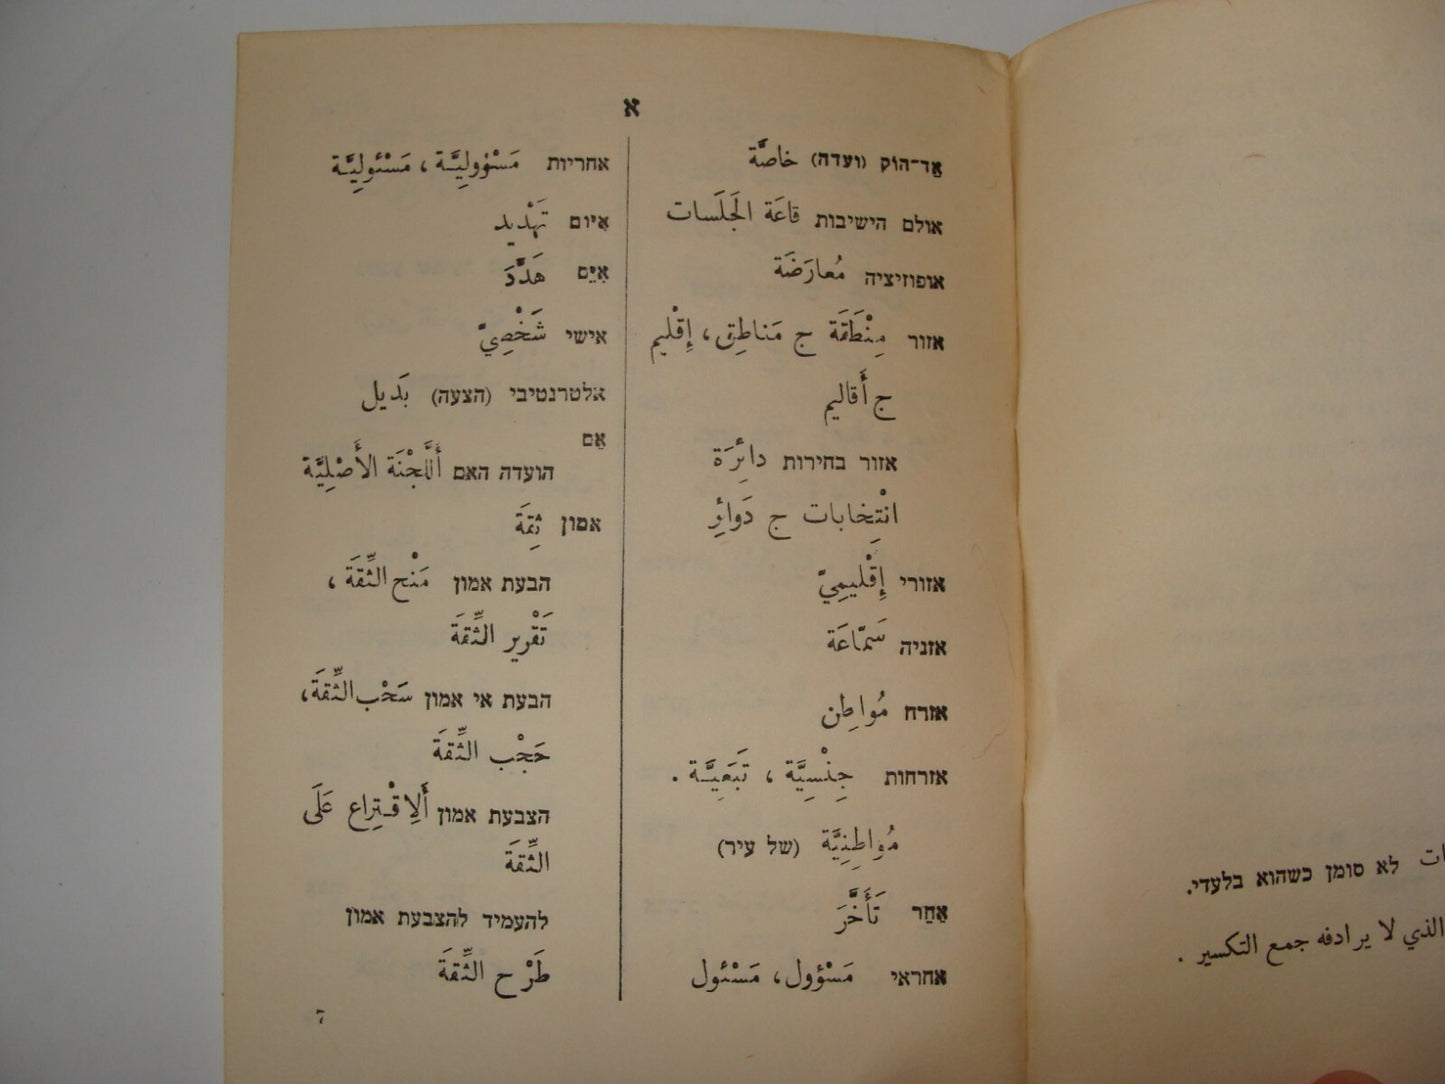 א
אַד־הוֹק (ועדה) خاصَّة
אולם הישיבות قاعَة الجَلَسات
אופוזיציה مُعارَضَة
אזור مِنْطَقَة ج مَناطِق، إِقْليم
ج أَقاليم
אזור בחירות دائِرَة
انْتِخابات ج دَوائِر
אזורי إِقْليمِيّ
אזניה سَمّاعَة
אזרח مُواطِن
אזרחות جِنْسِيَّة ، تَبَعِيَّـة .
مُواطِنِيَّة (של עיר)
אֵחַר تَأَخَّرَ
אחראי مَسْؤول، مَسْئول
אחריות مَسْؤولِيَّـة ، مَسْئولِيَّـة
אִיוּם تَهْديد
אִיֵּם هَدَّدَ
אישי شَخْصِيّ
אלטרנטיבי (הצעה) بَديل
אֵם
הועדה האם أَللَّجْنَة الأَصْلِيَّة
אמון ثِقَة
הבעת אמון مَنْح الثِّقَة ،
تَقْرير الثِّقَة
הבעת אי אמון سَحْب الثِّقَة،
حَجْب الثِّقَة
הצבעת אמון أَلِاقْتِراع عَلَى
الثِّقَة
להעמיד להצבעת אמון
طَرْح الثِّقَة
7
ات לא סומן כשהוא בלעדי.
الذي لا يرادفه جمع التكسير .